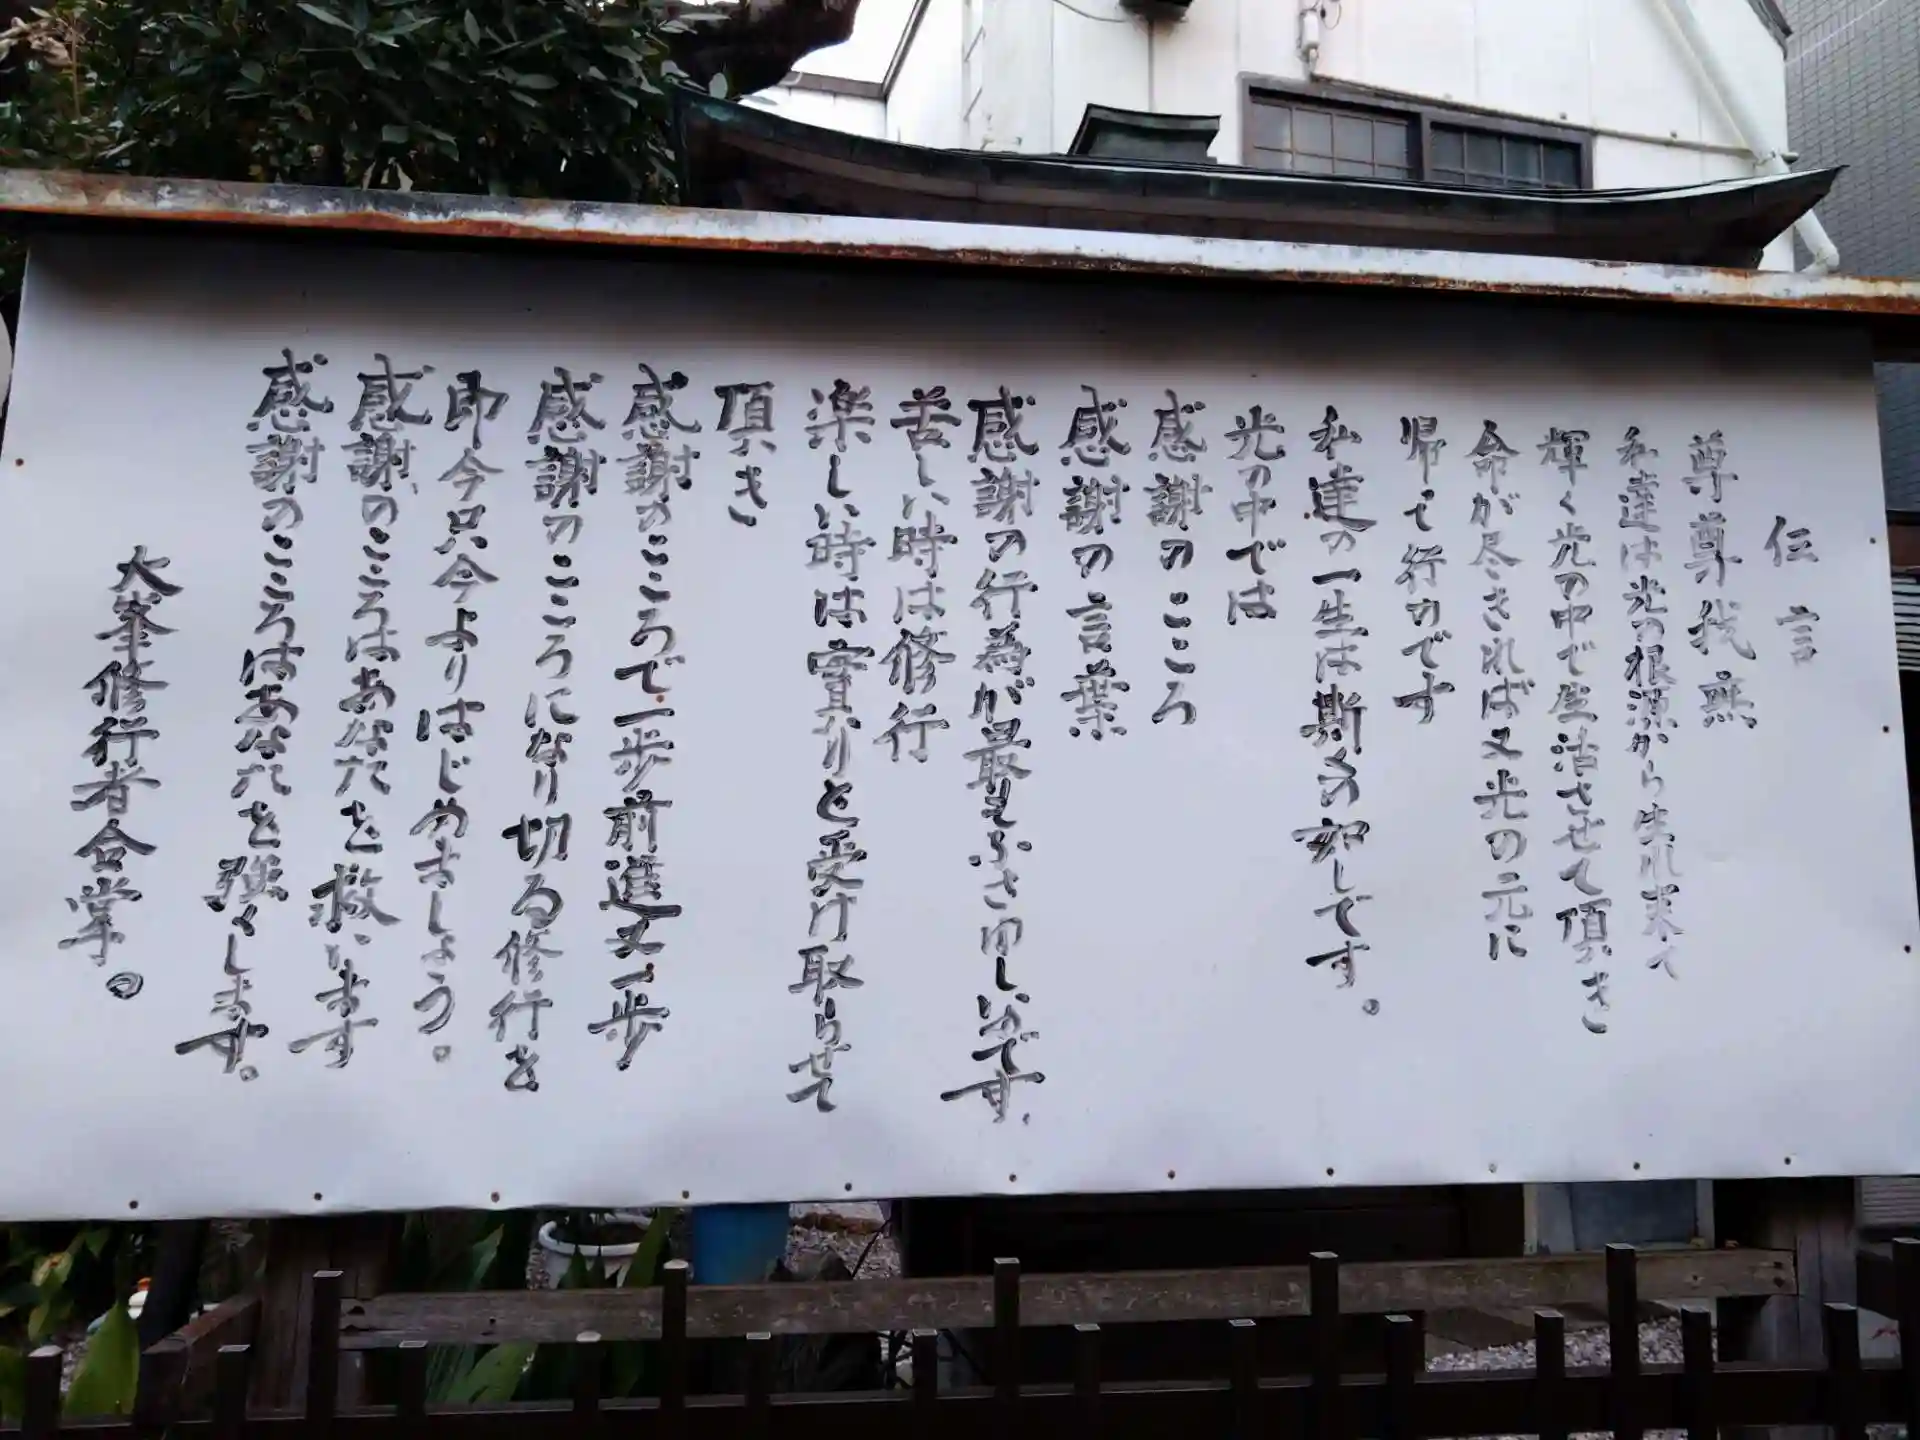 伝言
尊尊我無
私達は光の根源から生れ来て
輝く光の中で生活させて頂き
命が尽き れば又光の元に
帰て行のです
私達の一生は斯の如しです。
光の中では
感謝のこころ
感謝の言葉
感謝の行為が最もふさわしいのです、
苦しい時は修行
楽しい時は実りと受け取らせて
頂き
感謝のこころで一歩前進又一歩
感謝のこころになり切る修行を
即今只今よりはじめましょう。
感謝のこころはあなたを救います
感謝のこころはあなたを強くします。
大峯修行者合掌。